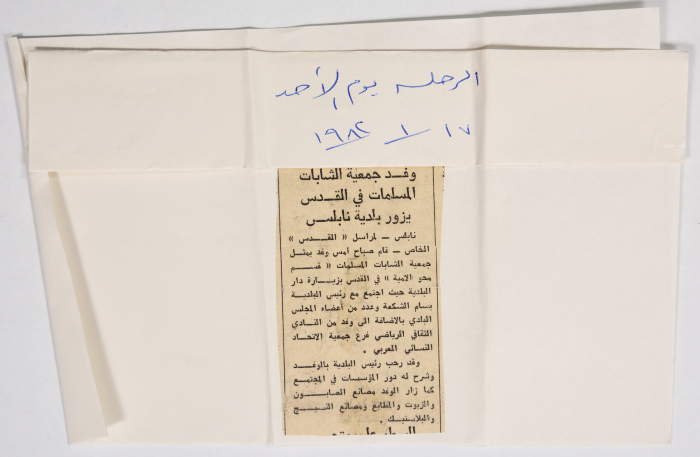 الرحله يوم الأحد
١٧ / ١ / ١٩٨٢
وفد جمعية الشابات
المسلمات في القدس
يزور بلدية نابلس
نابلس – لمراسل « القدس »
الخاص – قام صباح امس وفد يمثل
جمعية الشابات المسلمات « قسم
محو الامية » في القدس بزيارة دار
البلدية حيث اجتمع مع رئيس البلدية
بسام الشكعة وعدد من أعضاء المجلس
البلدي بالاضافة الى وفد من النادي
الثقافي الرياضي فرع جمعية الاتحاد
النسائي العربي .
وقد رحب رئيس البلدية بالوفد
وشرح له دور المؤسسات في المجتمع
كما زار الوفد مصانع الصابون
والزيوت والمطابع ومصانع النسيج
والبلاستيك .